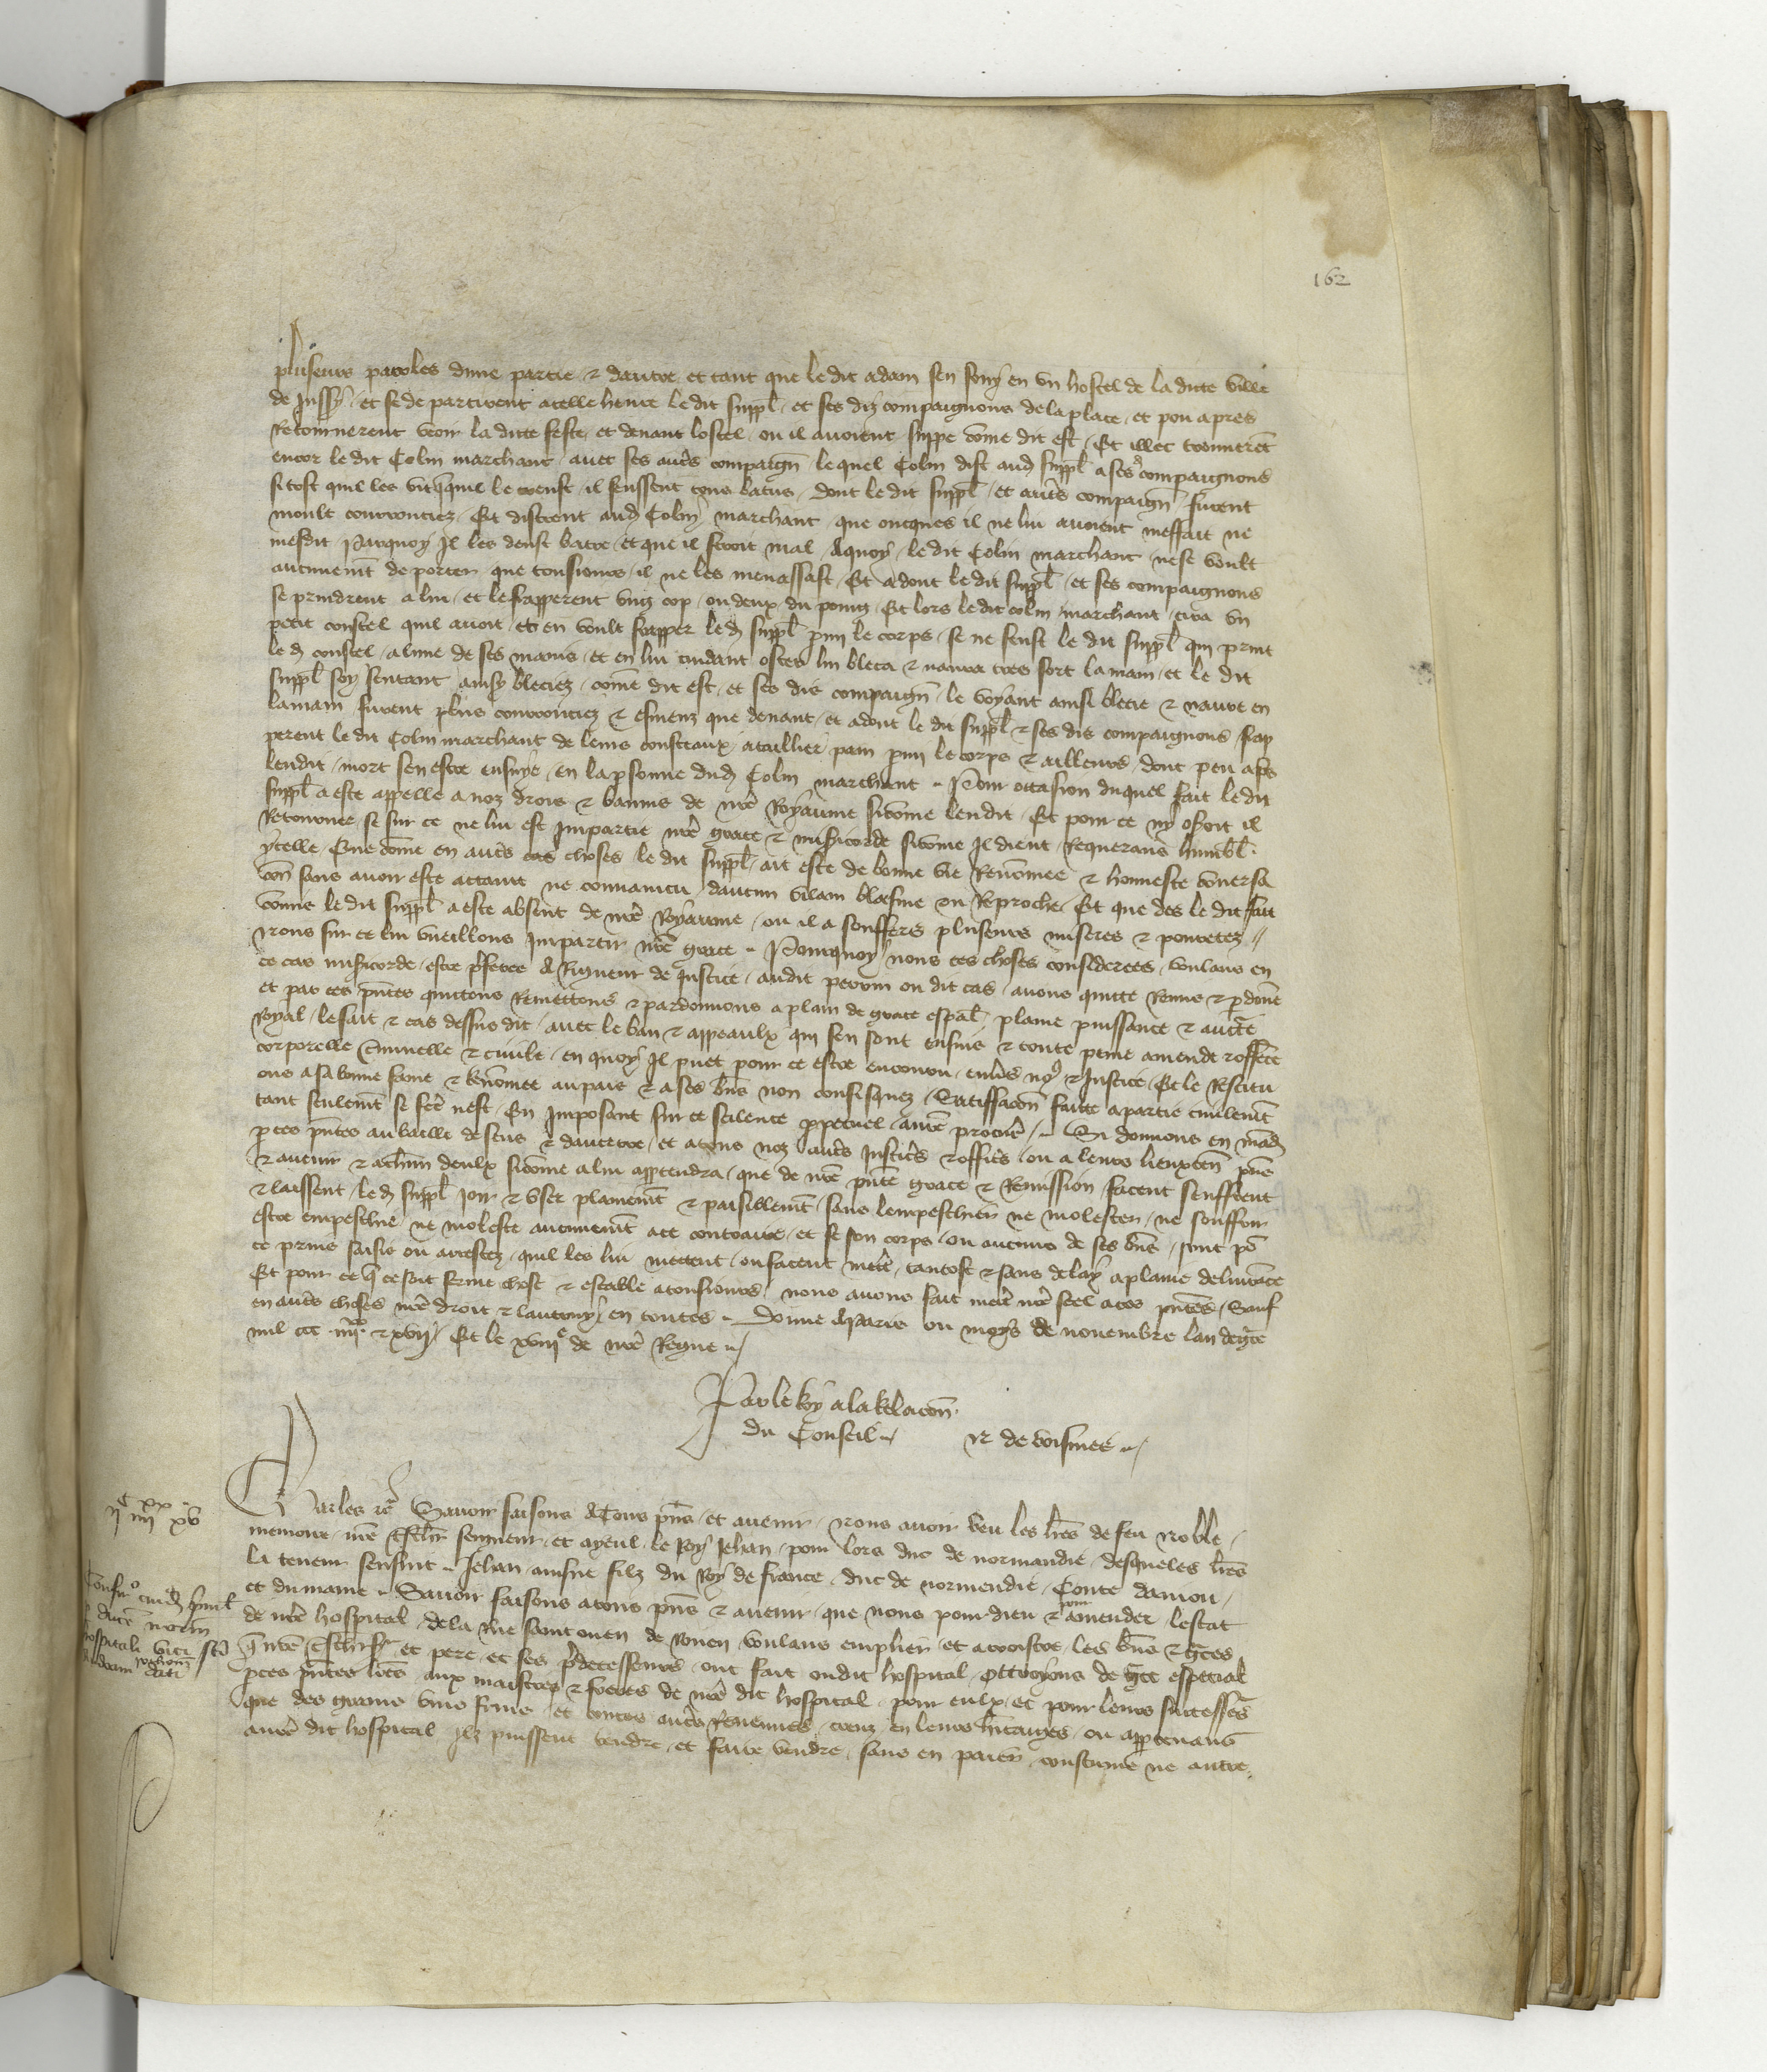 162
pluseurs paroles dune partie & dautre et tant que le dit adam sen fouy en vn hostel de la dicte ville
de Jussy et se departirent a celle heure le dit suppl̄ et ses diz compaignons de la place et pou apres
Retournerent veoir la dicte feste et deuant lostel ou il auoient suppe cōme dit est Et illec trouuerēt
encor le dit Colin marchant auec ses autˢ compaign̄ le quel Colin dist aud suppl̄ a ses compaignons
si tost quil les vit quil le creust il feussent tous batus dont le dit suppl̄ et autˢ compaign̄ furent
moult courrouciez Et distrent aud Colin marchant que oncques il ne lui auoient meffait ne
mesdit Parquoy Il les deust batre et que il feroit mal A quoy le dit Colin marchant ne se voult
aucunemt deporter que tousiours il ne les menassast Et adont le dit suppl̄ et ses compaignons
se prindrent a lui et le frapperent vng cop ou deux du poing Et lors le dit colin marchant tira vn
petit coustel quil auoit et en voult frapper le d suppl̄ pmi le corps se ne feust le dit suppl̄ qui print
le d coustel a lune de ses mains et en lui cuidant oster lui bleca & naura tres fort la main et le dit
suppl̄ soy sentant ainsy bleciez cōme dit est et ses dis compaign̄ le voyant ainsi blecie & naure en
la main furent plus courrouciez & esmeuz que deuant et adont le dit suppl̄ & ses dis compaignons frap
perent le dit Colin marchant de leurs cousteaux a taillier pain pmi le corps & ailleurs dont peu apˢ
lendit mort sen estre ensuye en la psonne dud Colin marchant Pour occasion duquel fait le dit
suppl̄ a este appelle a noz drois & bannis de nr̄e Royaume sicōme len dit Et pour ce ny oseroit il
Retourner se sur ce ne lui est Impartie nr̄e grace & misicorde sicōme Il dient Requerans humbl̄
ycelle Que cōme en autˢ cas choses le dit suppl̄ ait este de bonne vie Renōmee & honneste cōuersa
cōn sans auoir este attaint ne conuaincu daucun vilain blasme ou Reproche Et que des le dit fait
cōme le dit suppl̄ a este absent de nr̄e Royaume ou il a souffers pluseurs miseres & pouretez
nous sur ce lui vueillons Impartir nr̄e grace Pourquoy nous ces choses considerees voulans en
ce cas misicorde estre pferee A Rigueur de Justice audit perrin ou dit cas auons quitte Remis & pdōne
et par ces pn̄tes quittons Remettons & pardonnons a plain de grace espal̄ plaine puissance & auctte
Royal le fait & cas dessus dit auec le ban & appeaulx qui sen sont ensuis & toute peine amende & offēce
corporelle Criminelle & ciuile en quoy Il puet pour ce estre encouru enuˢ nous & Justice Et le Restitu
ons a sa bonne fame & Renōmee au pais & a ses bn̄s non confisquez Satiffacōn faicte a partie ciuilemt
tant seulemt se fcē nest En Imposant sur ce scilence ppetuel a nr̄e procur̄ Si donnons en mād
p ces pn̄tes au bailli de sens & daucerre et a tous noz autˢ Justicˢ & officˢ ou a leurs lieuxten̄ pn̄s
& auenir & a chūn deulx sicōme a lui apptendra que de nr̄e pn̄te grace & Remission facent seuffrent
& laissent le d suppl̄ Joir & vser plainemt & paisiblemt sans lempeschier ne molester ne souffrir
estre empeschie ne moleste aucunemt a ce contraire et se son corps ou aucuns de ses bn̄s sont po
ce prins saisis ou arrestez quil les lui mettent ou facent mettr̄ tantost & sans delay a plaine deliurāce
Et pour ce q̄ ce soit ferme chose & estable a tousiours nous auons fait mettr̄ nr̄e seel a ces pn̄tes Sauf
en autˢ choses nr̄e droit & lautruy en toutes Donne A Paris ou moys de nouembre lan de gr̄ce
mil ccc iiiixx & xvij Et le xviij e de nr̄e Regne
Par le Roy a la Relacōn
du Conseil N de voisines
ijc iiiixx xv
Charles &c Sauoir faisons A Tous pn̄s et auenir nous auoir veu les lr̄es de feu noble
memoire nr̄e Treschr̄ seigneur et ayeul le Roy Jehan pour lors duc de normandie desqueles lr̄es
la teneur sensuit Jehan ainsne filz du Roy de france duc de normendie Conte daniou
et du maine Sauoir faisons a tous pn̄s & auenir que nous pour dieu & pour amender lestat
de nr̄e hospital de la Rue saint ouen de Rouen voulans emplier et accroistre les bn̄s & gr̄ces
q̄ nr̄e Treschr̄ sr et pere et ses predecesseurs ont fait oudit hospital Ottroyons de gr̄ce especial
p ces pn̄tes lr̄es aux maistres & freres de nr̄e dit hospital pour eulx et pour leurs successrs
que des grains vins fruis et toutes autˢ Reuenues creuz en leurs hītaiges ou apptenans
a nr̄e dit hospital Ilz puissent vendre et faire vendre sans en paier coustume ne autre